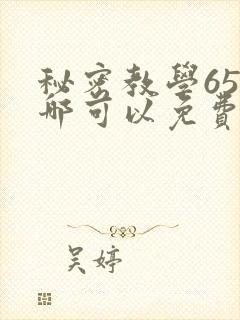 秘密教學65
哪可以免費
吴婷